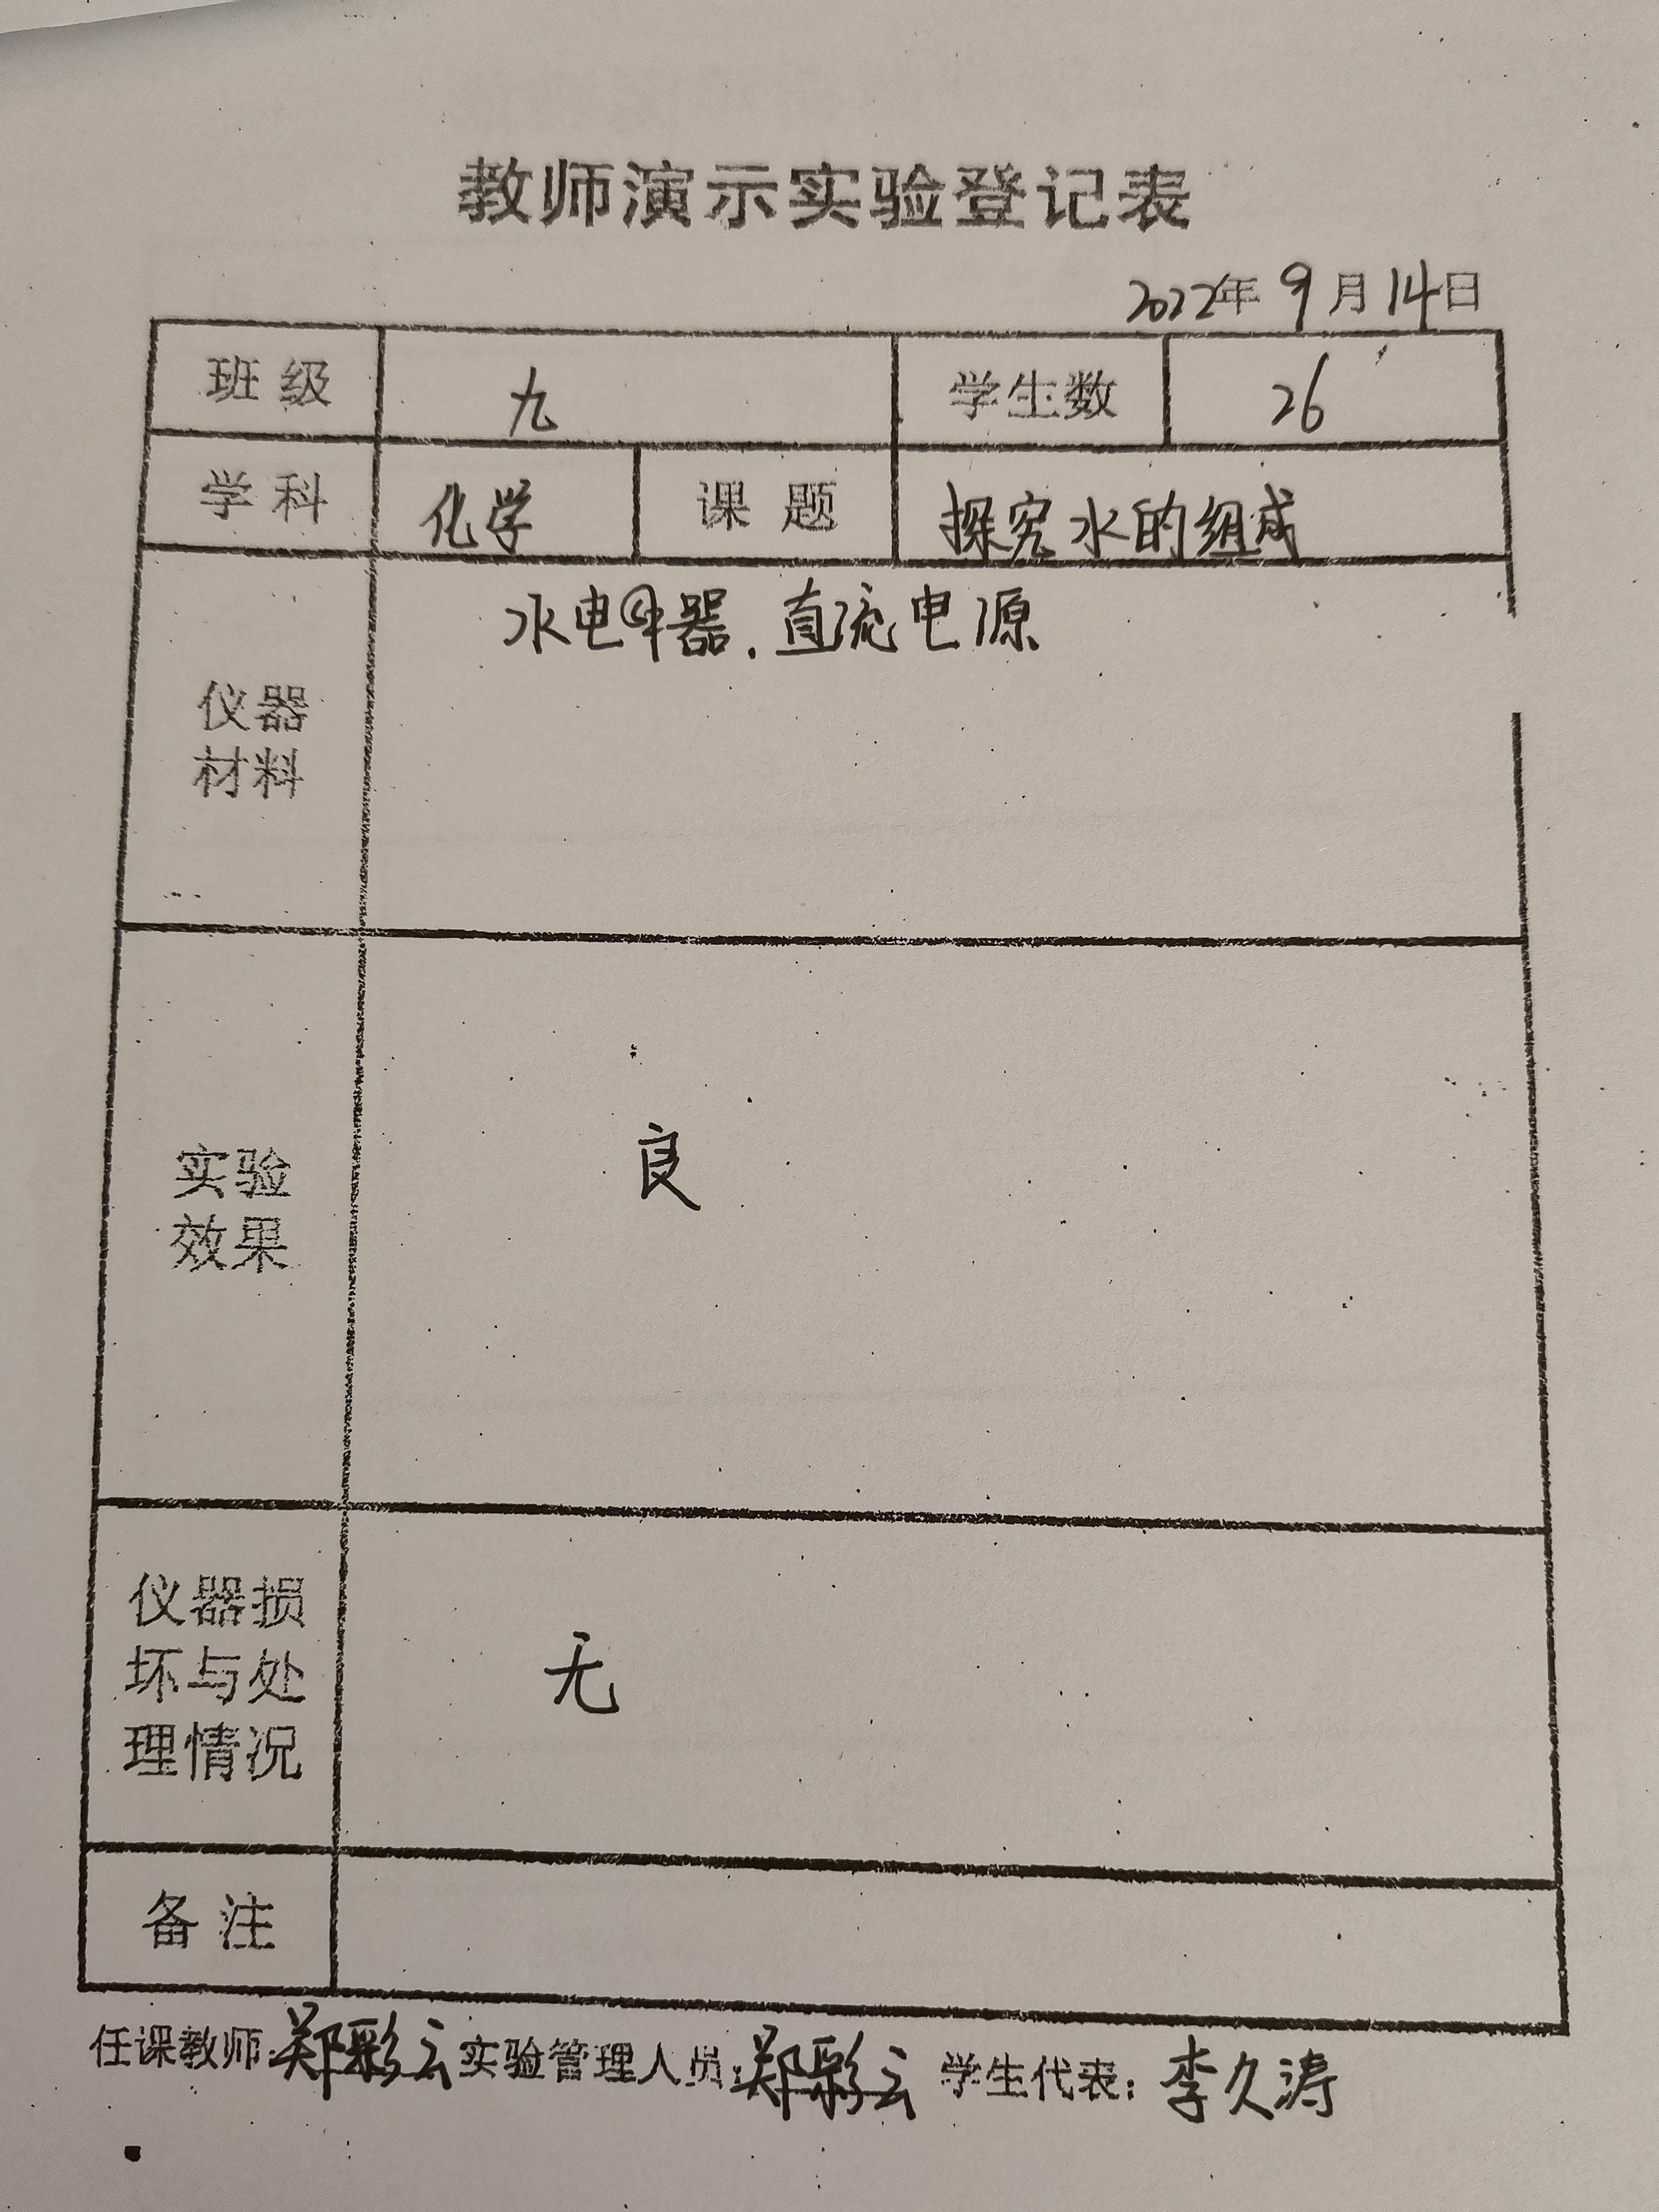 教师演示实验登记表
2022年 9 月 14 日
班 级 九 学生数 26
学 科 化学 课 题 探究水的组成
仪器
材料
水电解器.直流电源
实验
效果
良
仪器损
坏与处
理情况
无
备 注
任课教师:郑彩云 实验管理人员:郑彩云 学生代表:李久涛